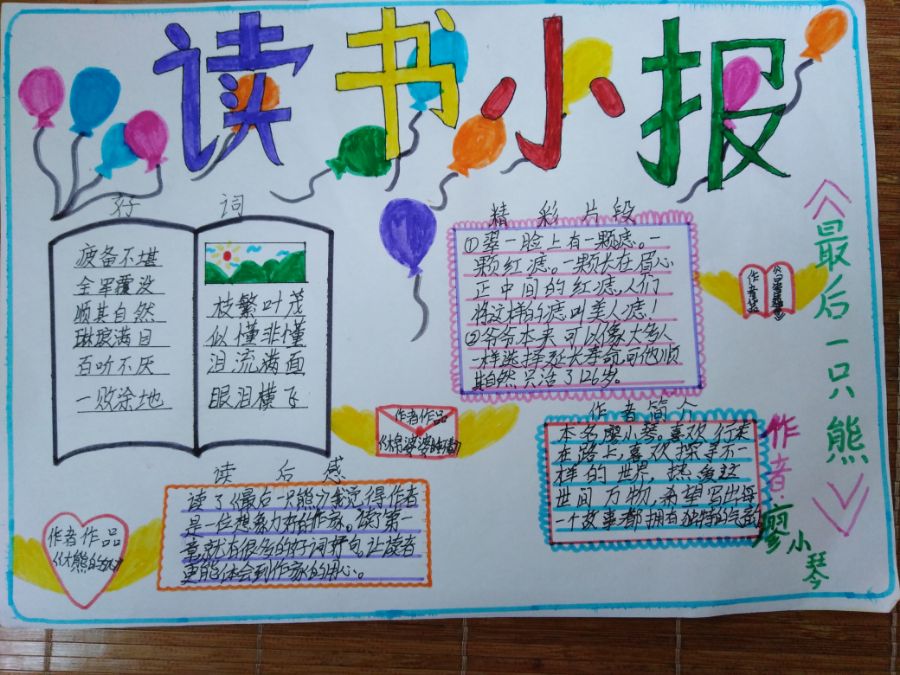 读书小报
好词
疲备不堪
全军覆没
顺其自然
琳琅满目
百听不厌
一败涂地
枝繁叶茂
似懂非懂
泪流满面
眼泪横飞
精彩片段
①翠一脸上有一颗痣。一
颗红痣。一颗长在眉心
正中间的红痣。人们
将这样的痣叫美人痣！
②爷爷本来可以像大多人
一样选择延长寿命可他顺
其自然只活了126岁。
作者作品
《最后一只熊》
作者:廖小琴
作者作品
作者简介
本名廖小琴。喜欢行走
在路上，喜欢探寻不一
样的世界，热爱这
世间万物，希望写出每
一个故事都拥有独特的气韵
读后感
读了《最后一只熊》我觉得作者
是一位想象力丰的作家。读了第一
章就有很多的好词好句，让读者
更能体会到作家的用心。
作者作品
《大熊的